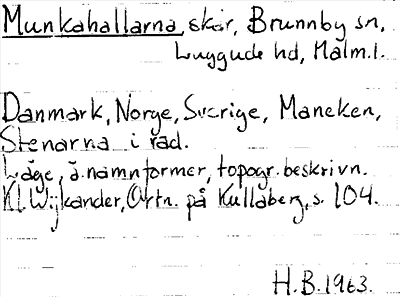 Munkahallarna, skär, Brunnby sn,
Luggude hd, Malm.l.
Danmark, Norge, Sverige, Maneken,
Stenarna i rad.
Läge, ä.namnformer, topogr.beskrivn.
Kl.Wijkander, Ortn. på Kullaberg, s. 104.
H.B.1963.